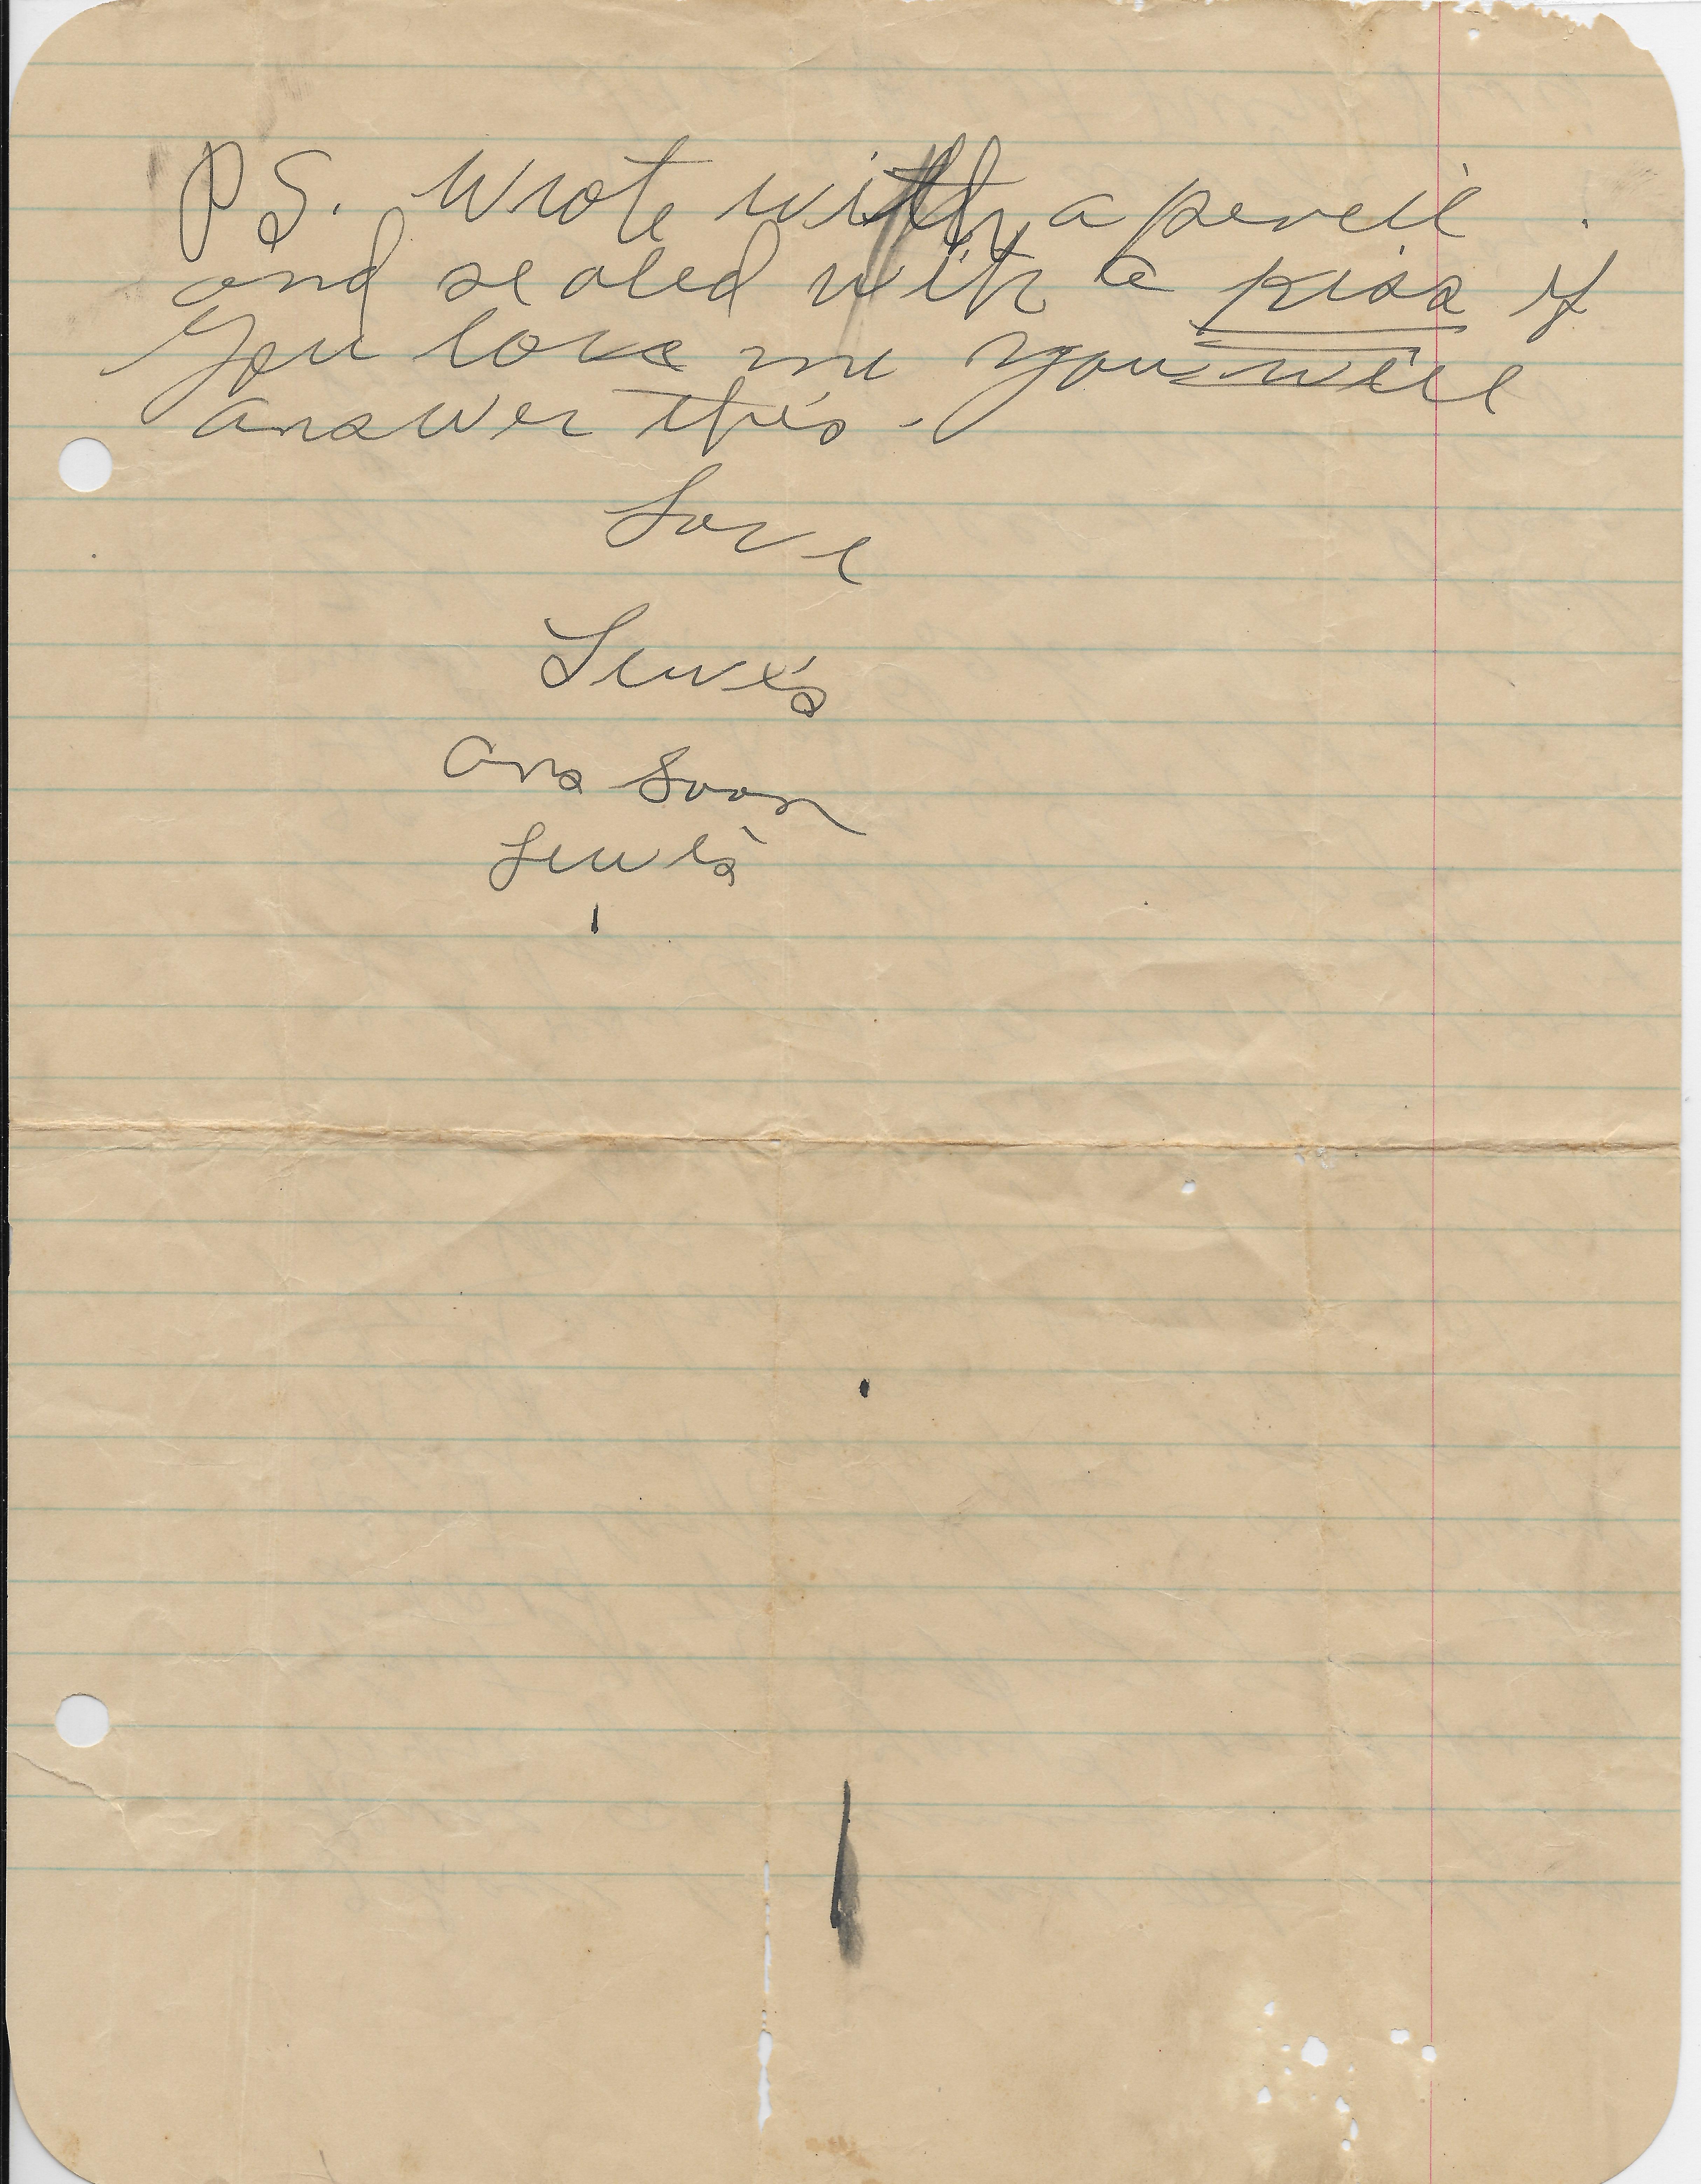 PS. Wrote with a pencil.
and sealed with a kiss if
you love me you will
answer this.
Love
Lewis
Ans Soon
Lewis